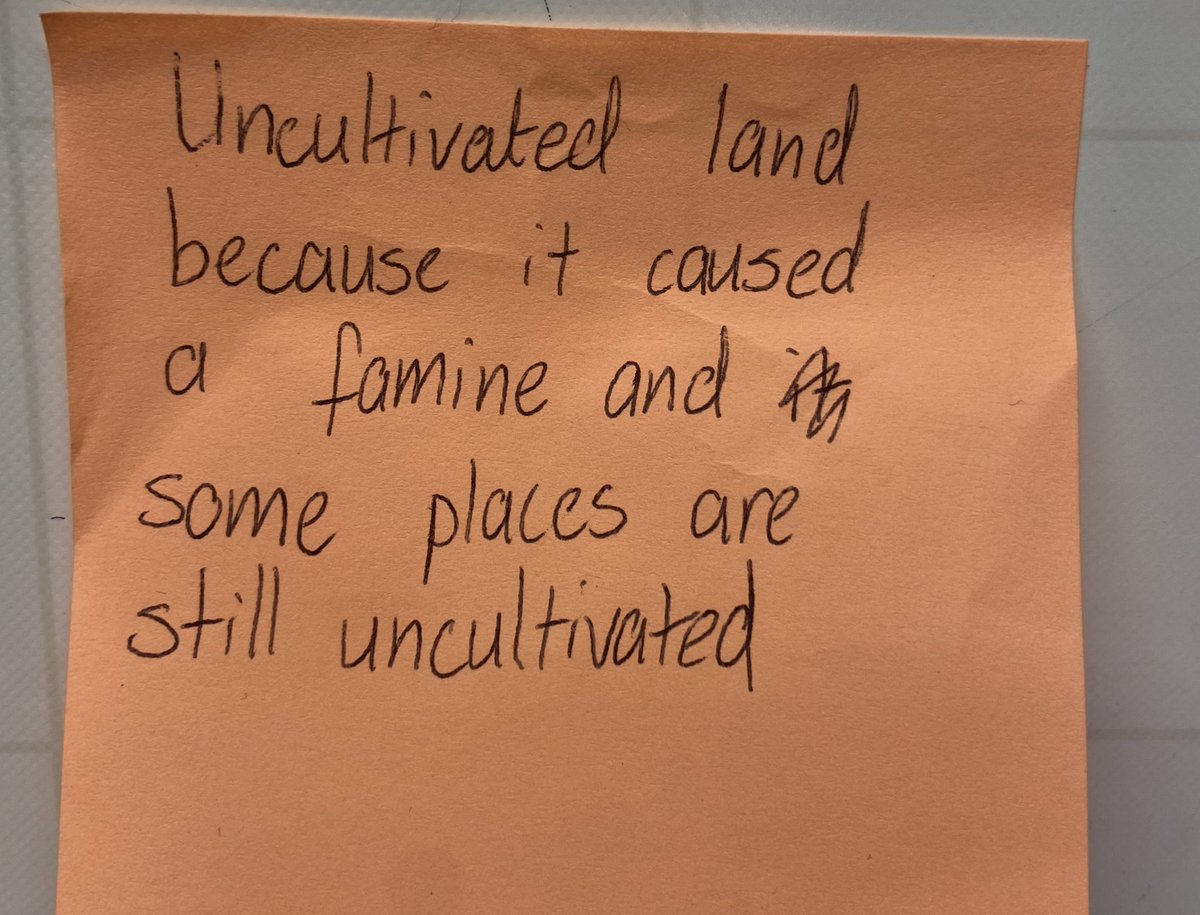 Uncultivated land
because it caused
a famine and
some places are
still uncultivated